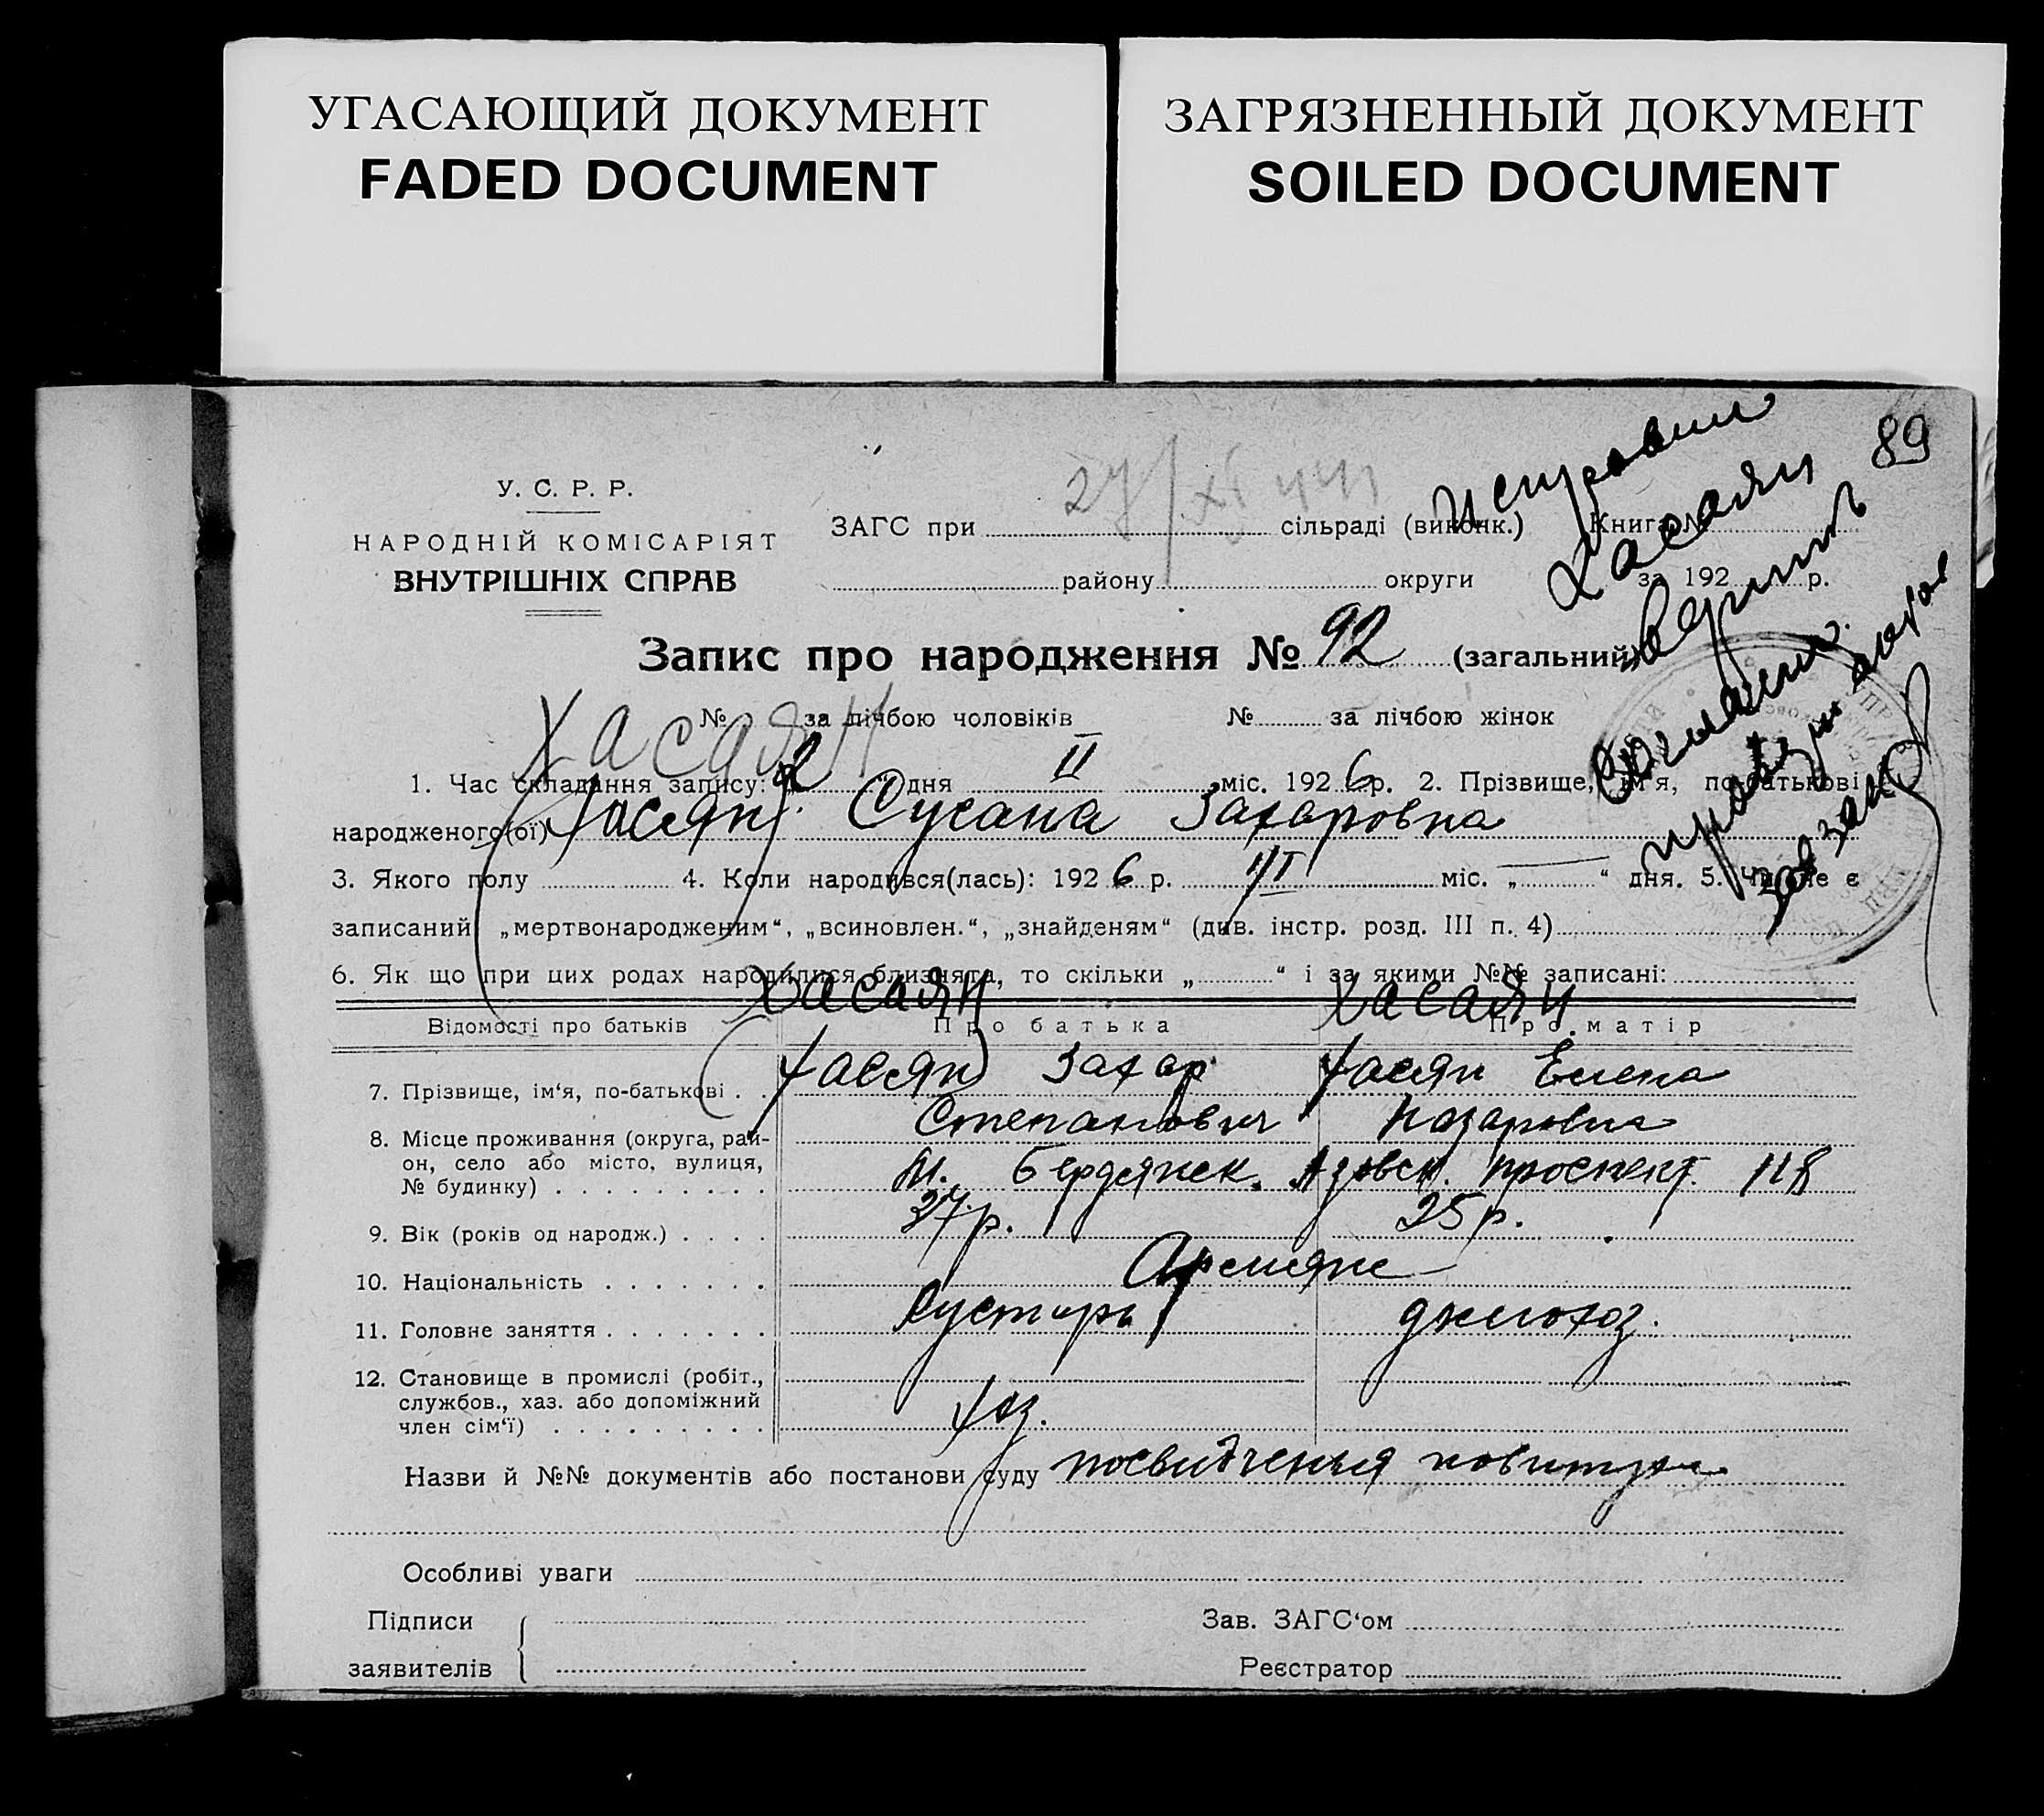 УГАСАЮЩИЙ ДОКУМЕНТ
FADED DOCUMENT
ЗАГРЯЗНЕННЫЙ ДОКУМЕНТ
SOILED DOCUMENT
89
У. С. Р. Р.
НАРОДНІЙ КОМІСАРІЯТ
ВНУТРІШНІХ СПРАВ
ЗАГС при сільраді (виконк.) Книга №
району округи за 192 р.
Хасаян
Запис про народження № 92 (загальний)
№ за лічбою чоловіків № за лічбою жінок
Хасаян
1. Час складання запису: дня II міс. 1926 р. 2. Прізвище, ім'я, по-батькові
народженого(ої) Хасян Сусана Захаровна
3. Якого полу 4. Коли народився(лась): 1926 р. міс. „ “ дня. 5. Чи не є
записаний „мертвонародженим“, „всиновлен.“, „знайденям“ (див. інстр. розд. III п. 4)
6. Як що при цих родах народилися близнята, то скільки „ “ і за якими №№ записані:
Хасаян Хасаян
Відомості про батьків Про батька Про матір
7. Прізвище, ім‘я, по-батькові . . Хасян Захар Степанович Хасян Елена Назаровна
8. Місце проживання (округа, рай-
он, село або місто, вулиця,
№ будинку) . . . . . . . . . м. Бердянск. Азовск. проспект. 118
9. Вік (років од народж.) . . . . 27 р. 25 р.
10. Національність . . . . . . . Армяне
11. Головне заняття . . . . . . . Кустарь
12. Становище в промислі (робіт.,
службов., хаз. або допоміжний
член сім‘ї) . . . . . . . . . хоз.
Назви й №№ документів або постанови суду посвидчення
Особливі уваги
Підписи
заявителів
Зав. ЗАГС‘ом
Реєстратор